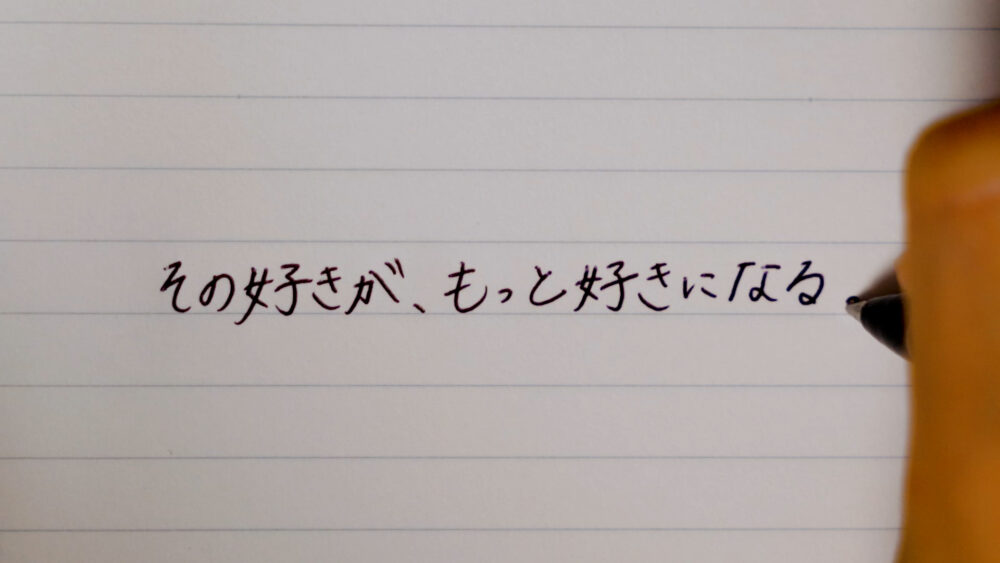 その好きが、もっと好きになる